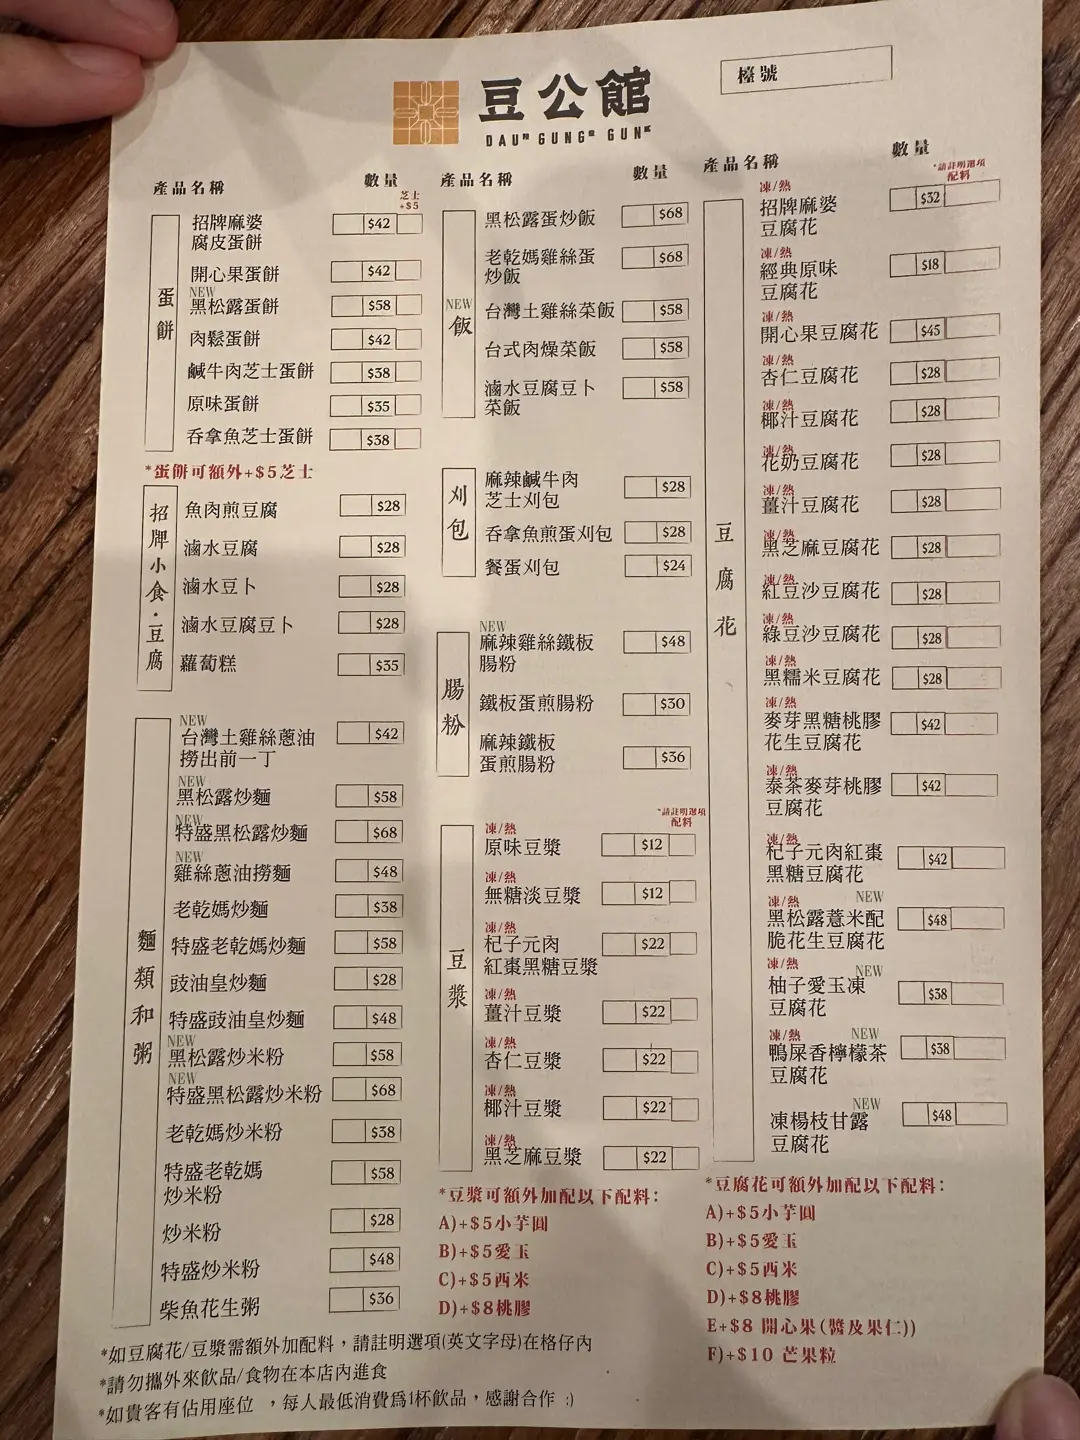 豆公館
DAU GUNG GUN
檯號
產品名稱 數量
芝士
+$5
蛋餅
招牌麻婆
腐皮蛋餅 $42
開心果蛋餅 $42
NEW
黑松露蛋餅 $58
肉鬆蛋餅 $42
鹹牛肉芝士蛋餅 $38
原味蛋餅 $35
吞拿魚芝士蛋餅 $38
*蛋餅可額外+$5芝士
招牌小食·豆腐
魚肉煎豆腐 $28
滷水豆腐 $28
滷水豆卜 $28
滷水豆腐豆卜 $28
蘿蔔糕 $35
麵類和粥
NEW
台灣土雞絲蔥油
撈出前一丁 $42
NEW
黑松露炒麵 $58
NEW
特盛黑松露炒麵 $68
NEW
雞絲蔥油撈麵 $48
老乾媽炒麵 $38
特盛老乾媽炒麵 $58
豉油皇炒麵 $28
特盛豉油皇炒麵 $48
NEW
黑松露炒米粉 $58
NEW
特盛黑松露炒米粉 $68
老乾媽炒米粉 $38
特盛老乾媽
炒米粉 $58
炒米粉 $28
特盛炒米粉 $48
柴魚花生粥 $36
產品名稱 數量
NEW
飯
黑松露蛋炒飯 $68
老乾媽雞絲蛋
炒飯 $68
台灣土雞絲菜飯 $58
台式肉燥菜飯 $58
滷水豆腐豆卜
菜飯 $58
刈包
麻辣鹹牛肉
芝士刈包 $28
吞拿魚煎蛋刈包 $28
餐蛋刈包 $24
腸粉
NEW
麻辣雞絲鐵板
腸粉 $48
鐵板蛋煎腸粉 $30
麻辣鐵板
蛋煎腸粉 $36
*請註明選項
配料
豆漿
凍/熱
原味豆漿 $12
凍/熱
無糖淡豆漿 $12
凍/熱
杞子元肉
紅棗黑糖豆漿 $22
凍/熱
薑汁豆漿 $22
凍/熱
杏仁豆漿 $22
凍/熱
椰汁豆漿 $22
凍/熱
黑芝麻豆漿 $22
*豆漿可額外加配以下配料：
A)+$5小芋圓
B)+$5愛玉
C)+$5西米
D)+$8桃膠
產品名稱 數量
*請註明選項
配料
豆腐花
凍/熱
招牌麻婆
豆腐花 $32
凍/熱
經典原味
豆腐花 $18
凍/熱
開心果豆腐花 $45
凍/熱
杏仁豆腐花 $28
凍/熱
椰汁豆腐花 $28
凍/熱
花奶豆腐花 $28
凍/熱
薑汁豆腐花 $28
凍/熱
黑芝麻豆腐花 $28
凍/熱
紅豆沙豆腐花 $28
凍/熱
綠豆沙豆腐花 $28
凍/熱
黑糯米豆腐花 $28
凍/熱
麥芽黑糖桃膠
花生豆腐花 $42
凍/熱
泰茶麥芽桃膠
豆腐花 $42
凍/熱
杞子元肉紅棗
黑糖豆腐花 $42
凍/熱 NEW
黑松露薏米配
脆花生豆腐花 $48
凍/熱 NEW
柚子愛玉凍
豆腐花 $38
凍/熱 NEW
鴨屎香檸檬茶
豆腐花 $38
NEW
凍楊枝甘露
豆腐花 $48
*豆腐花可額外加配以下配料：
A)+$5小芋圓
B)+$5愛玉
C)+$5西米
D)+$8桃膠
E+$8 開心果(醬及果仁))
F)+$10 芒果粒
*如豆腐花/豆漿需額外加配料，請註明選項(英文字母)在格仔內
*請勿攜外來飲品/食物在本店內進食
*如貴客有佔用座位 ，每人最低消費爲1杯飲品，感謝合作 :)